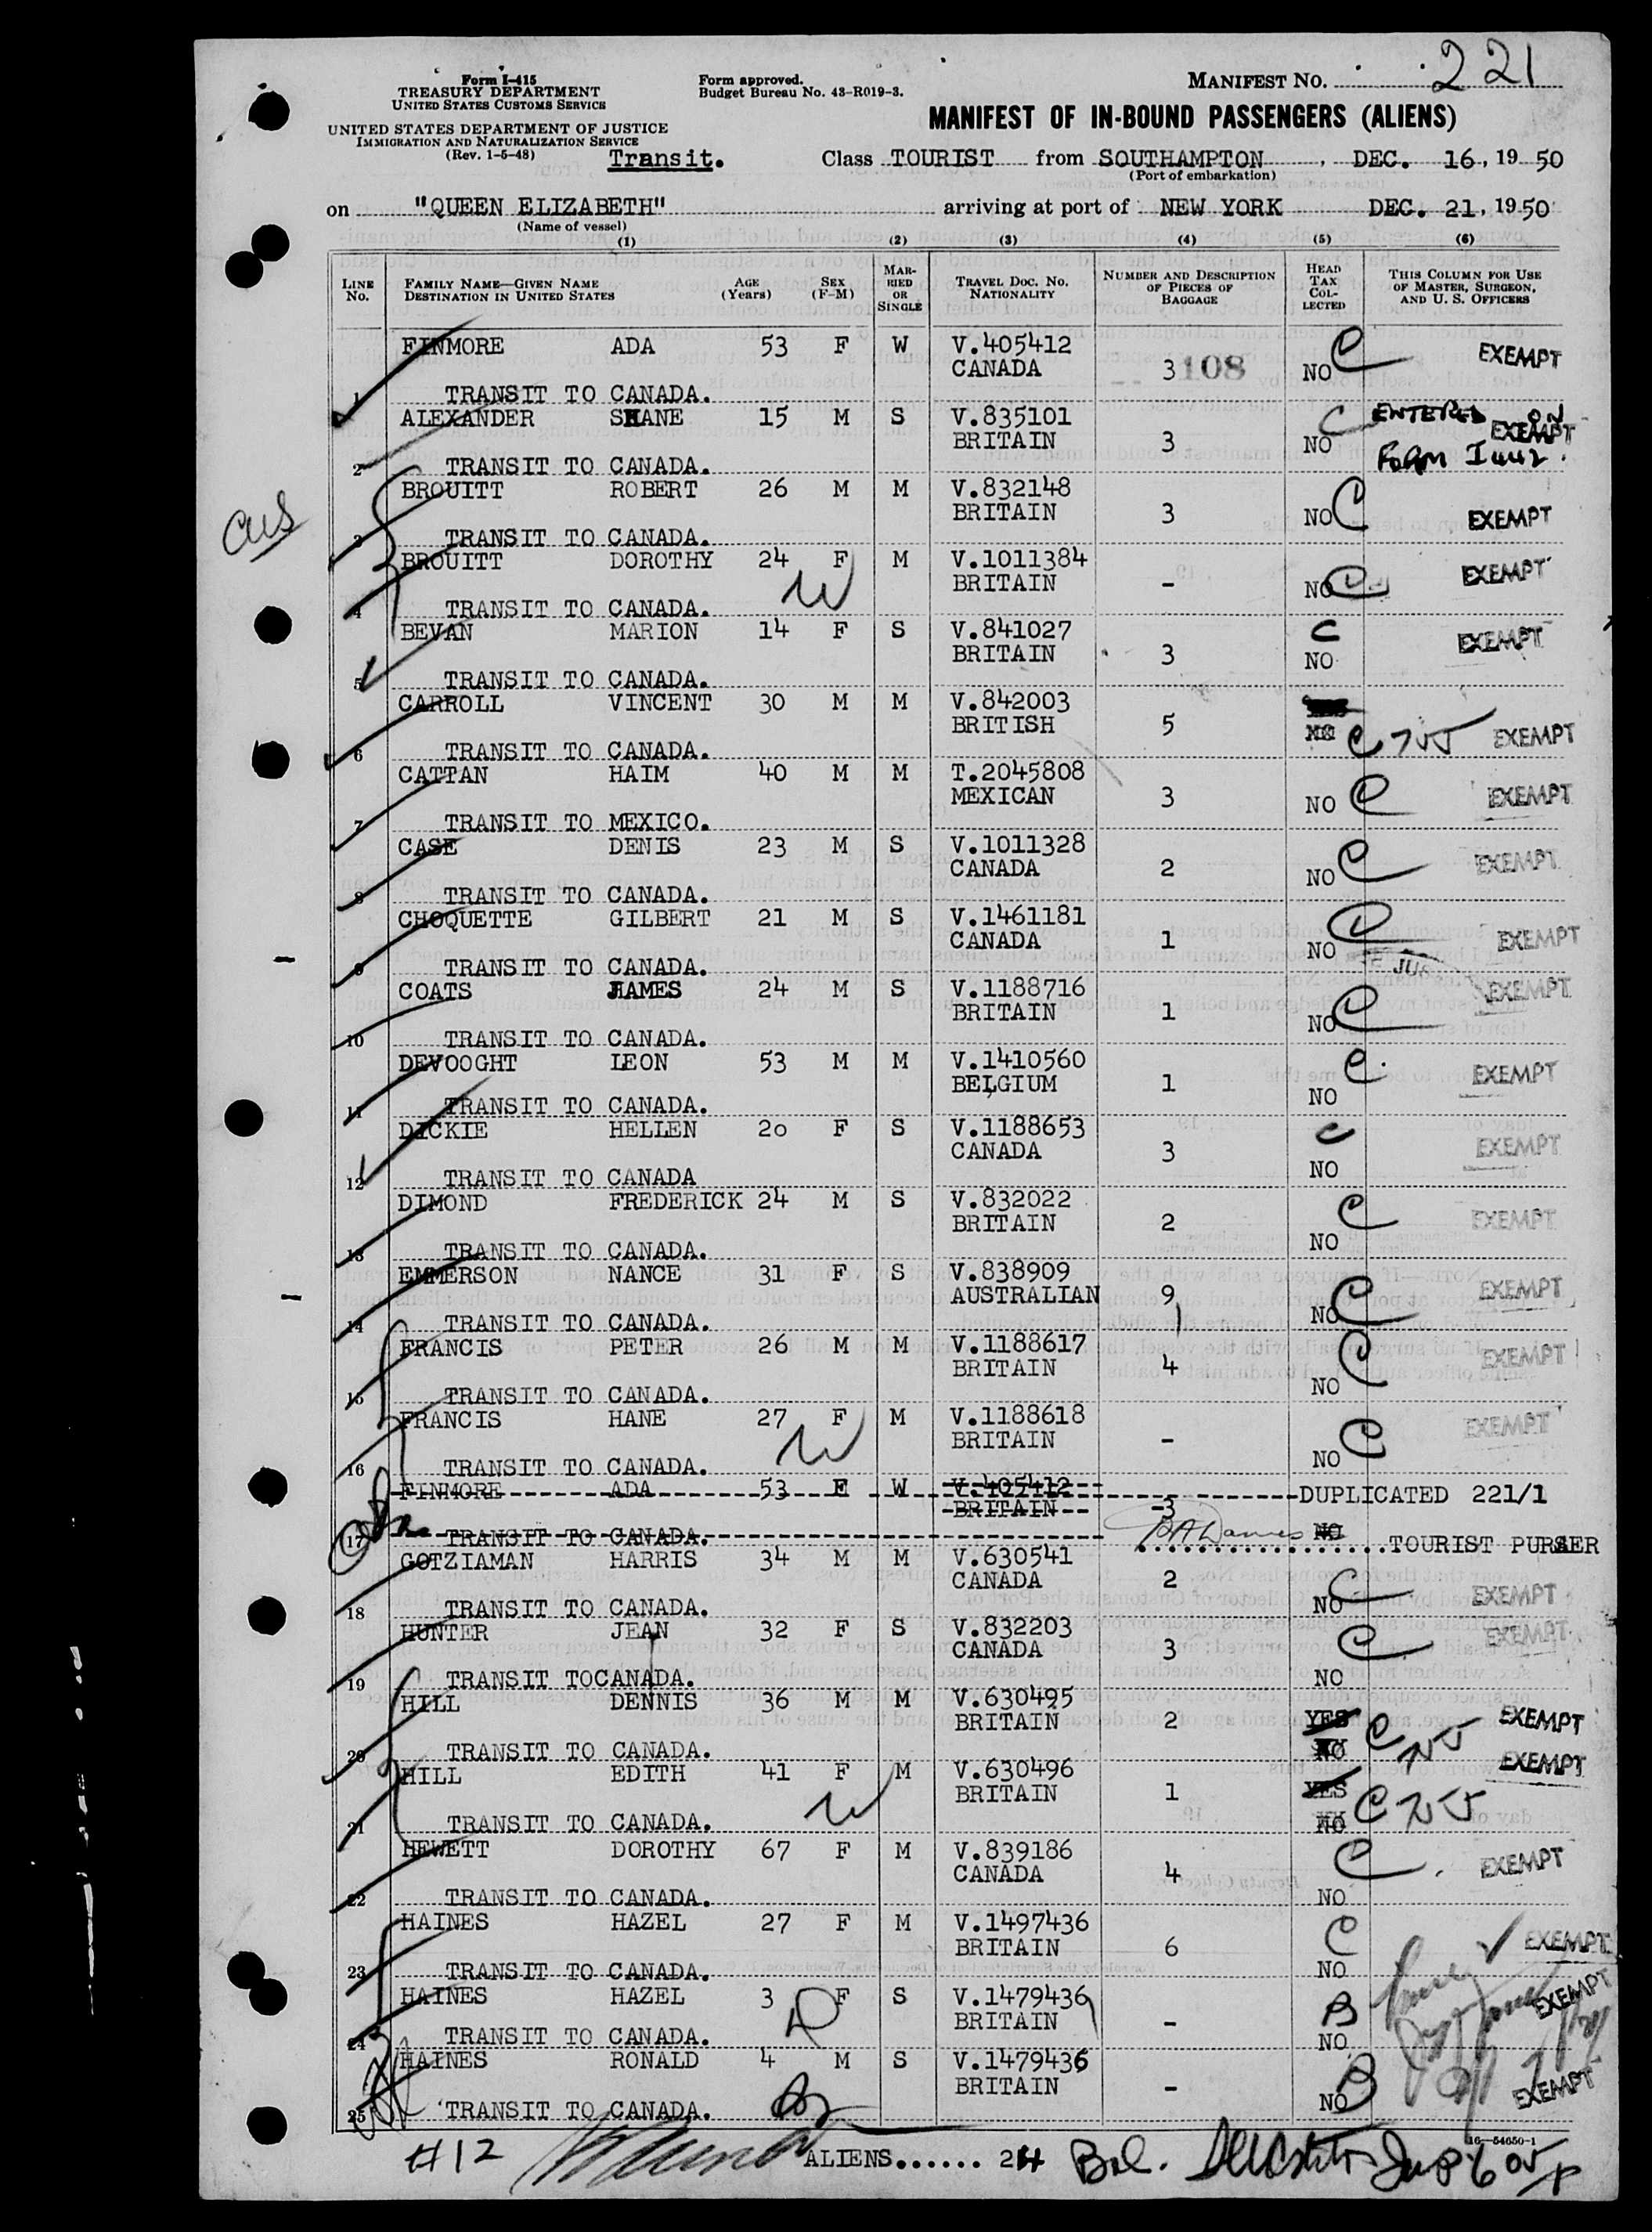 Form I-415
TREASURY DEPARTMENT
UNITED STATES CUSTOMS SERVICE
UNITED STATES DEPARTMENT OF JUSTICE
IMMIGRATION AND NATURALIZATION SERVICE
(Rev. 1-5-48)
Form approved.
Budget Bureau No. 43-R019-3.
MANIFEST NO. 221
MANIFEST OF IN-BOUND PASSENGERS (ALIENS)
Transit. Class TOURIST from SOUTHAMPTON, DEC. 16, 1950
(Port of embarkation)
on "QUEEN ELIZABETH" arriving at port of NEW YORK DEC. 21, 1950
(Name of vessel)
(1) (2) (3) (4) (5) (6)
LINE No. FAMILY NAME—GIVEN NAME DESTINATION IN UNITED STATES AGE (Years) SEX (F-M) MARRIED OR SINGLE TRAVEL DOC. NO. NATIONALITY NUMBER AND DESCRIPTION OF PIECES OF BAGGAGE HEAD TAX COLLECTED THIS COLUMN FOR USE OF MASTER, SURGEON, AND U. S. OFFICERS
FINMORE ADA 53 F W V.405412 C EXEMPT
CANADA 3 108 NO
1 TRANSIT TO CANADA.
ALEXANDER SHANE 15 M S V.835101 C ENTERED ON
BRITAIN 3 NO EXEMPT
2 TRANSIT TO CANADA. FORM I442.
BROUITT ROBERT 26 M M V.832148
BRITAIN 3 NO C EXEMPT
3 TRANSIT TO CANADA.
BROUITT DOROTHY 24 F M V.1011384
W BRITAIN - NO C EXEMPT
4 TRANSIT TO CANADA.
BEVAN MARION 14 F S V.841027 C EXEMPT
BRITAIN 3 NO
5 TRANSIT TO CANADA.
CARROLL VINCENT 30 M M V.842003
BRITISH 5 NO C EXEMPT
6 TRANSIT TO CANADA.
CATTAN HAIM 40 M M T.2045808
MEXICAN 3 NO C EXEMPT
7 TRANSIT TO MEXICO.
CASE DENIS 23 M S V.1011328
CANADA 2 NO C EXEMPT
8 TRANSIT TO CANADA.
CHOQUETTE GILBERT 21 M S V.1461181
CANADA 1 NO C EXEMPT
9 TRANSIT TO CANADA.
COATS JAMES 24 M S V.1188716 EXEMPT
BRITAIN 1 NO C
10 TRANSIT TO CANADA.
DEVOOGHT LEON 53 M M V.1410560 C
BELGIUM 1 NO EXEMPT
11 TRANSIT TO CANADA.
DICKIE HELLEN 20 F S V.1188653 C
CANADA 3 NO EXEMPT
12 TRANSIT TO CANADA
DIMOND FREDERICK 24 M S V.832022 C
BRITAIN 2 NO EXEMPT
13 TRANSIT TO CANADA.
EMMERSON NANCE 31 F S V.838909
AUSTRALIAN 9 NO C EXEMPT
14 TRANSIT TO CANADA.
FRANCIS PETER 26 M M V.1188617
BRITAIN 4 NO C EXEMPT
15 TRANSIT TO CANADA.
FRANCIS HANE 27 F M V.1188618
W BRITAIN - NO C EXEMPT
16 TRANSIT TO CANADA.
FINMORE ADA 53 F W V.405412 DUPLICATED 221/1
BRITAIN 3
17 TRANSIT TO CANADA. NO TOURIST PURSER
GOTZIAMAN HARRIS 34 M M V.630541
CANADA 2 NO C EXEMPT
18 TRANSIT TO CANADA.
HUNTER JEAN 32 F S V.832203 C EXEMPT
CANADA 3 NO
19 TRANSIT TOCANADA.
HILL DENNIS 36 M M V.630495
BRITAIN 2 YES C EXEMPT
20 TRANSIT TO CANADA. NO
HILL EDITH 41 F M V.630496 EXEMPT
W BRITAIN 1 YES C
21 TRANSIT TO CANADA. NO
HEWETT DOROTHY 67 F M V.839186 C EXEMPT
CANADA 4
22 TRANSIT TO CANADA. NO
HAINES HAZEL 27 F M V.1497436 C EXEMPT
BRITAIN 6
23 TRANSIT TO CANADA. NO
HAINES HAZEL 3 F S V.1479436 B EXEMPT
D BRITAIN - NO
24 TRANSIT TO CANADA.
HAINES RONALD 4 M S V.1479436 B
BRITAIN - NO EXEMPT
25 TRANSIT TO CANADA.
16-54650-1
#12 ALIENS...... 24